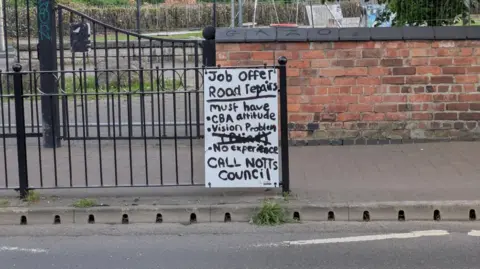 Job Offer
Road repairs
Must have
• CBA attitude
• Vision Problem
• No experience
CALL NOTTS
Council